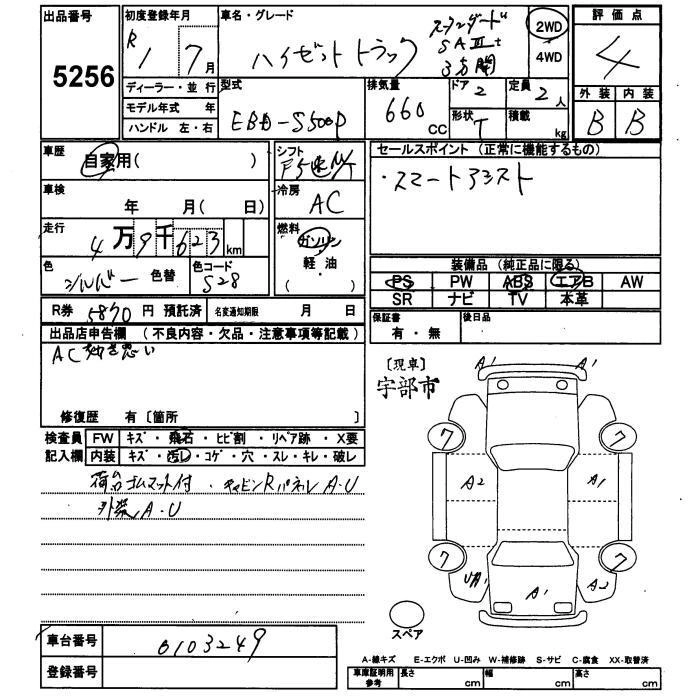 出品番号
5256
初度登録年月
R 1 7月
ディーラー・並行
モデル年式 年
ハンドル 左・右
車名・グレード
ハイゼットトラック
スタンダード
SAⅢt
3方開
2WD
4WD
型式
EBD-S500P
排気量
660 CC
ドア 2
形状 T
定員 2人
積載 kg
評価点
4
外装 内装
B B
車歴
自家用( )
車検
年 月( 日)
走行
4万9千623km
色
シルバー 色替
色コード
S28
シフト
F5速M/T
冷房
AC
燃料
ガソリン
軽・油
( )
セールスポイント (正常に機能するもの)
・スマートアシスト
装備品 (純正品に限る)
PS PW ABS エアB AW
SR ナビ TV 本革
保証書
有・無
後日品
R券 5870円 預託済 名変通知期限 月 日
出品店申告欄 (不良内容・欠品・注意事項等記載)
AC効き悪い
修復歴 有〔箇所 〕
検査員 FW キズ・飛石・ヒビ割・リペア跡・X要
記入欄 内装 キズ・汚レ・コゲ・穴・スレ・キレ・破レ
荷台ゴムマット付・キャビンRパネルA・U
外装A・U
〔現車〕
宇部市
A1 A1
7 7
A2 A1
7 7
UA1 A1 A2
スペア
車台番号
0103249
登録番号
A-線キズ E-エクボ U-凹み W-補修跡 S-サビ C-腐食 XX-取替済
車庫証明用参考 長さ cm 幅 cm 高さ cm